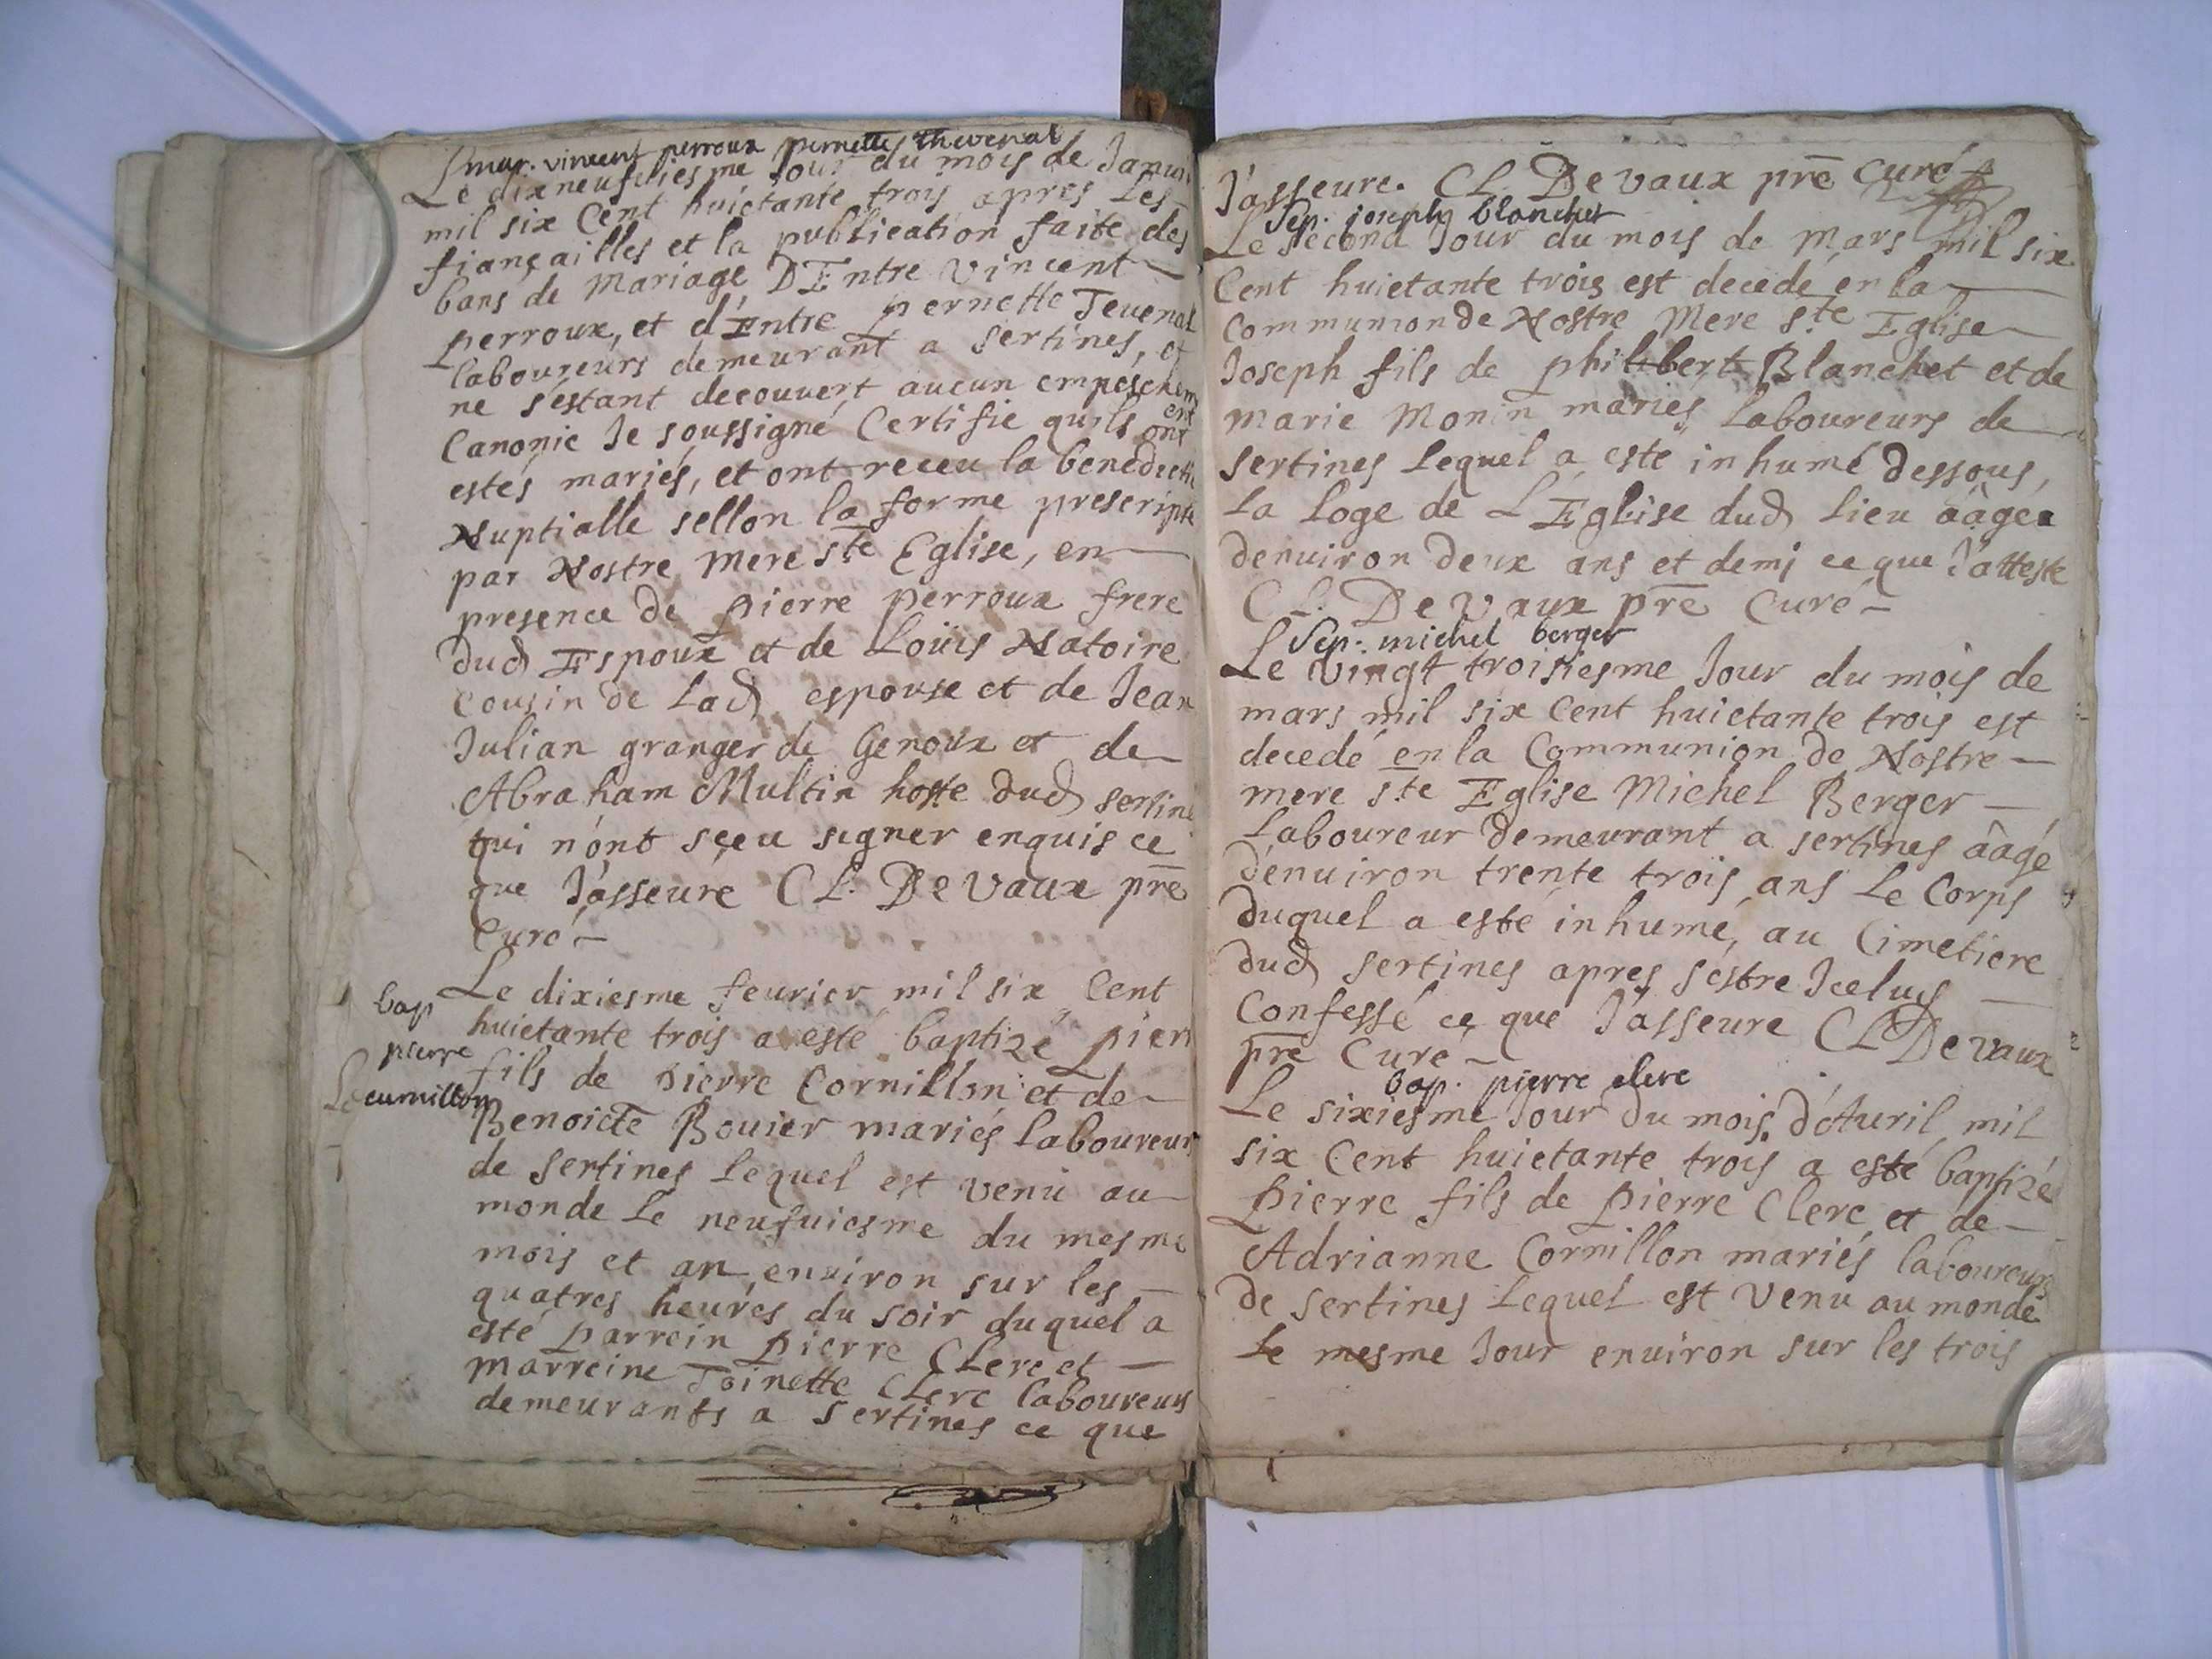 mar. vincent perroux pernette thevenal
Le dixneufuiesme Jour du mois de Januie
mil six Cent huictante trois apres Les
fiançailles et la publication faite des
bans de Mariage DEntre Vincent
perroux, et d'Entre pernette Teuenal
laboureurs demeurant a Sertines, et
ne s'estant decouvert aucun empeschem
ent
Canonic Je soussigné Certifie quils ont
estés mariés, et ont receu la benedicti
Nuptialle sellon la forme prescripte
par Nostre Mere Ste Eglise, en
presence de pierre perroux frere
dud Espoux et de Loüis Natoire
Cousin de Lad espouse et de Jean
Julian granger de Genoux et de
Abraham Multin hoste dud Sertine
qui n'ont sçeu signer enquis ce
que J'asseure CL. DeVaux pre
Curé
bap
pierre
curnillon
Le dixiesme feurier mil six Cent
huictante trois a esté baptizé pierr
fils de pierre Cornillon et de
Benoicte Bouier mariés laboureurs
de sertines Lequel est venu au
monde Le neufuiesme du mesme
mois et an enuiron sur les
quatres heures du soir duquel a
esté parrein pierre Clerc et
marreine Toinette Clerc laboureurs
demeurants a Sertines ce que
J'asseure. CL. DeVaux pre Curé
Sep. joseph blanchet
Le second Jour du mois de Mars mil six
Cent huictante trois est decedé en la
Communion de Nostre Mere Ste Eglise
Joseph fils de philibert Blanchet et de
Marie Monin mariés Laboureurs de
Sertines Lequel a esté inhumé dessous,
La Loge de L'Eglise dud Lieu aâgéa
denuiron deux ans et demj ce que J'atteste
CL. DeVaux pre Curé
Sep. michel berger
Le vingt troisiesme Jour du mois de
mars mil six Cent huictante trois est
decedé en la Communion de Nostre
mere Ste Eglise Michel Berger
Laboureur demeurant a sertines aâgé
d'enuiron trente trois ans Le Corps
duquel a esté inhumé, au Cimetiere
dud sertines apres s'estre Jceluy
Confessé ce que J'asseure CL DeVaux
pre Curé
bap. pierre clerc
Le sixiesme Jour du mois d'Auril mil
six Cent huictante trois a esté baptizé
Pierre fils de pierre Clerc et de
Adrianne Cornillon mariés laboureurs
de Sertines Lequel est Venu au monde
Le mesme Jour enuiron sur les trois